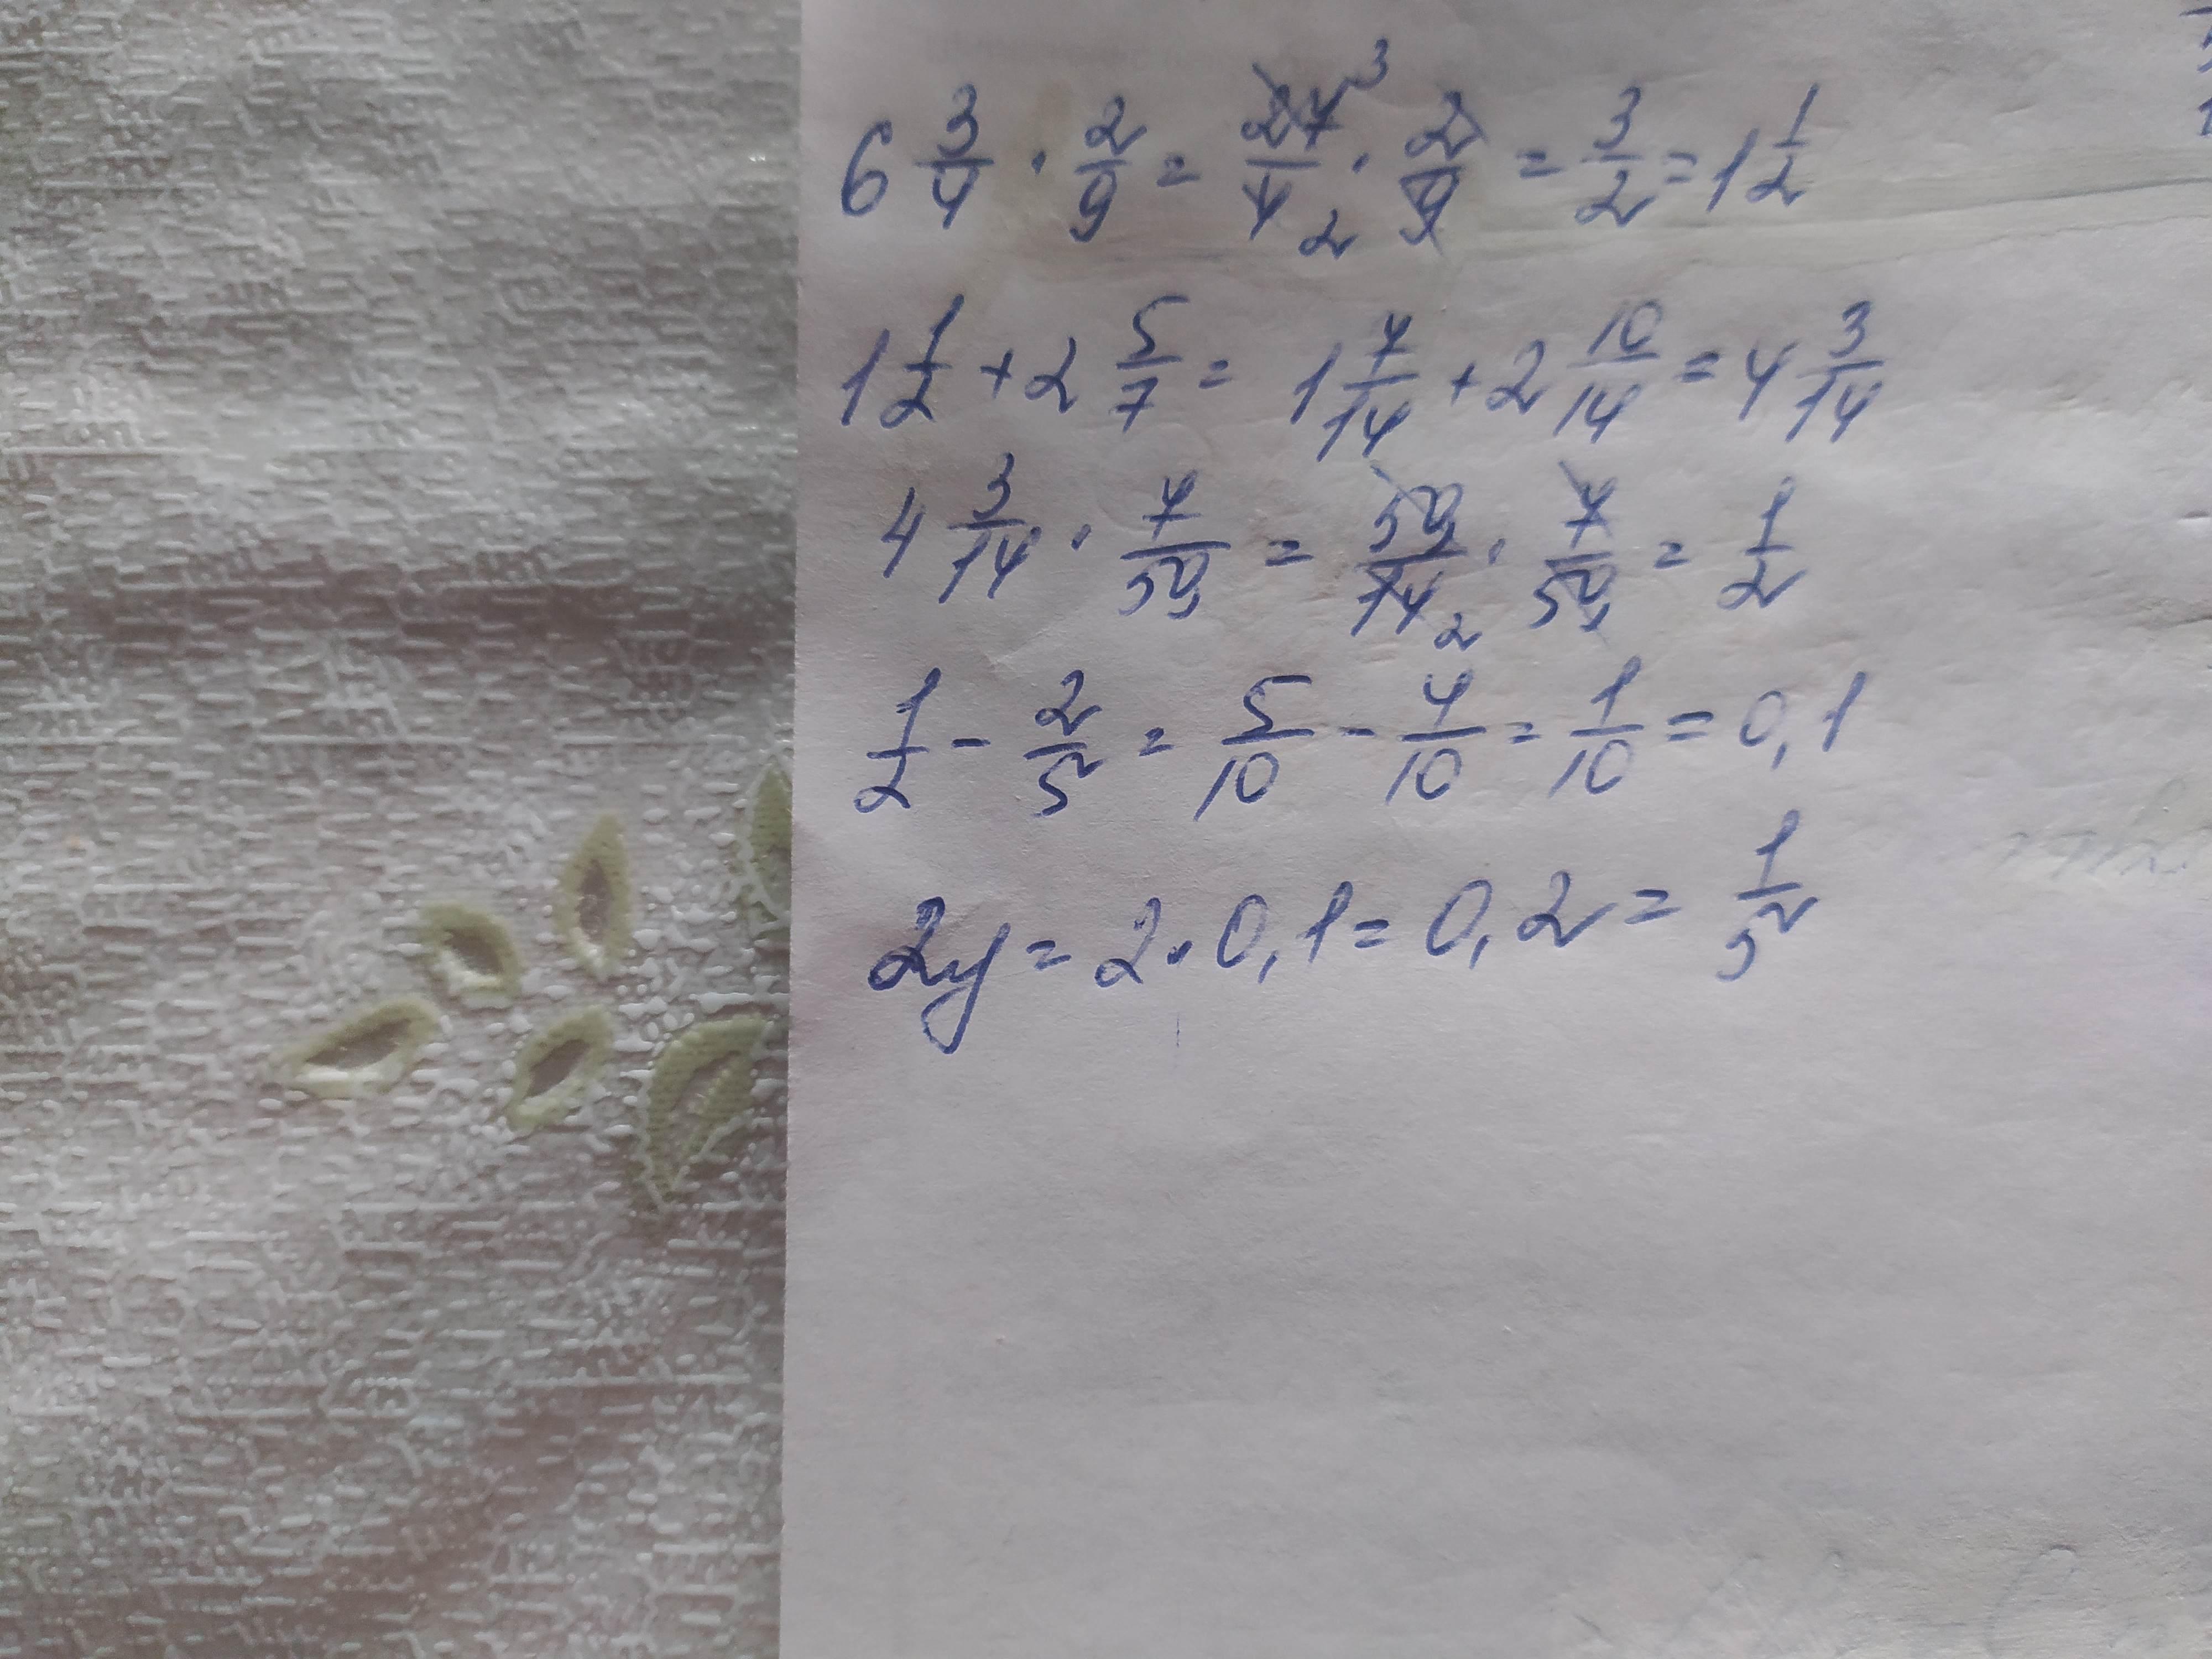 6 3/4 · 2/9 = 27³/4₂ · 2/9 = 3/2 = 1 1/2
1 1/2 + 2 5/7 = 1 7/14 + 2 10/14 = 4 3/14
4 3/14 · 7/59 = 59/14₂ · 7/59 = 1/2
1/2 - 2/5 = 5/10 - 4/10 = 1/10 = 0,1
2y = 2·0,1 = 0,2 = 1/5